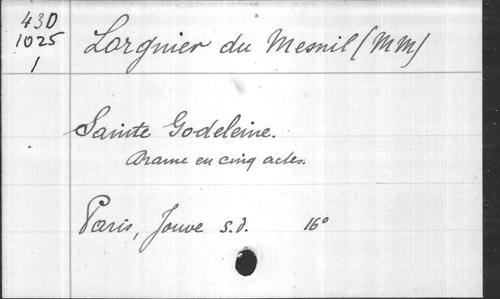 43D
1025
1
Largnier du Mesnil (MM)
Sainte Godeleine.
Drame en cinq actes.
Paris, Jouve s.d. 16°